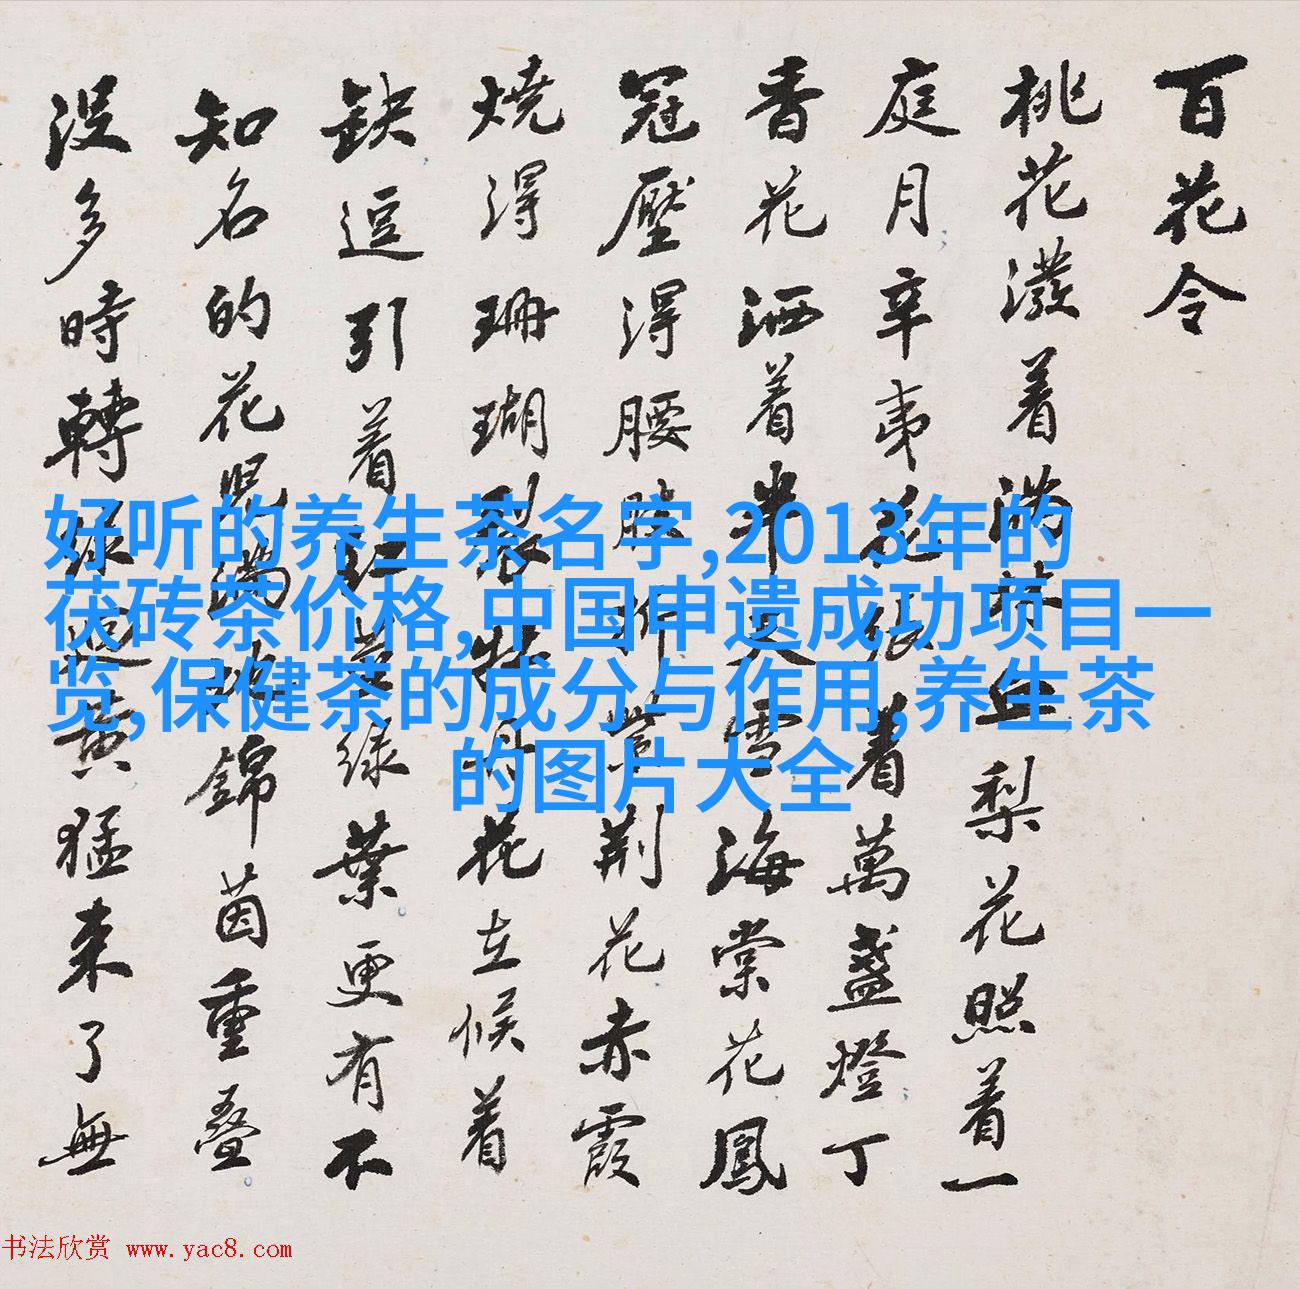 百花令
桃花潑着滿林血梨花照着一
庭月辛夷花着萬盞燈丁
香花洒着半天雪海棠花鳳
冠壓得腰肢折紫荆花赤霞
燒得珊瑚裂牡丹花立候着
缺逗引着紅綠葉更有不
知名的花兒滿地錦茵重疊
沒多時轉綠黃猛束了無
好听的养生茶名字,2013年的
茯砖茶价格,中国申遗成功项目一
览,保健茶的成分与作用,养生茶
的图片大全
书法欣赏 www.yac8.com